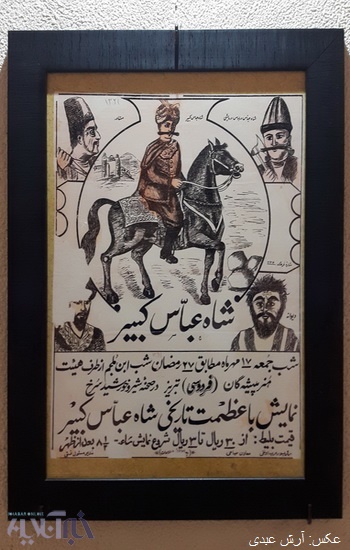 ۱۳۲۱
شاه عباس کبیر
دیوانه
شب جمعه ۱۷ مهرماه مطابق ۲۷ رمضان شب ابن ملجم از طرف هیئت
هنرپیشه‌گان (فردوسی) تبریز در صحنه شیر و خورشید سرخ
نمایش با عظمت تاریخی شاه عباس کبیر
قیمت بلیط: از ۳۰ ریال تا ۳ ریال شروع نمایش ساعت ۸½ بعد از ظهر
KHABARONLINE
خبرآنلاین
عکس: آرش عیدی